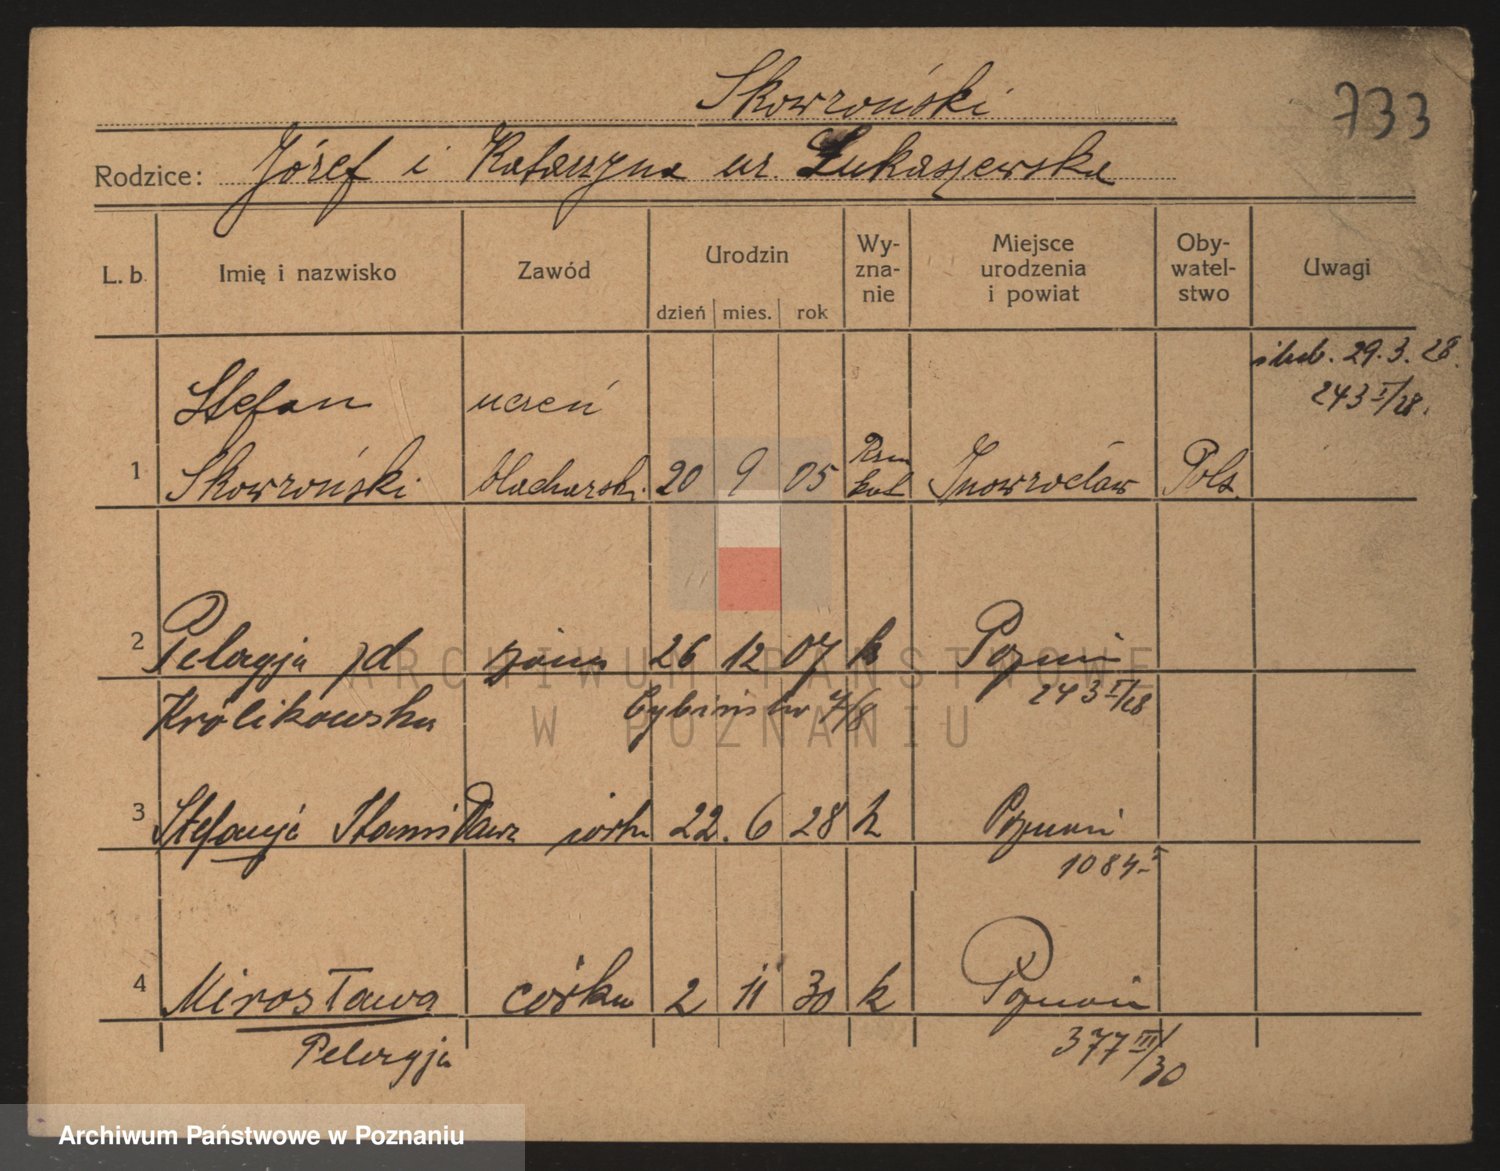 Skowroński
733
Rodzice: Józef i Katarzyna ur. Łukaszewska
L. b. Imię i nazwisko Zawód Urodzin Wy-zna-nie Miejsce urodzenia i powiat Oby-watel-stwo Uwagi
dzień mies. rok
ślub. 29.3.28.
243 I/28.
Stefan uczeń
1 Skowroński blacharski 20 9 05 Rzm kat Inowrocław Pols.
2 Pelagja zd żona 26 12 07 k Poznań
Królikowska Cybińska 7/8 243 I/28
3 Stefanja Stanisława córka 22. 6 28 k Poznań
1084 I
4 Mirosława córka 2 11 30 k Poznań
Pelagja 377 III/30
ARCHIWUM PAŃSTWOWE
W POZNANIU
Archiwum Państwowe w Poznaniu